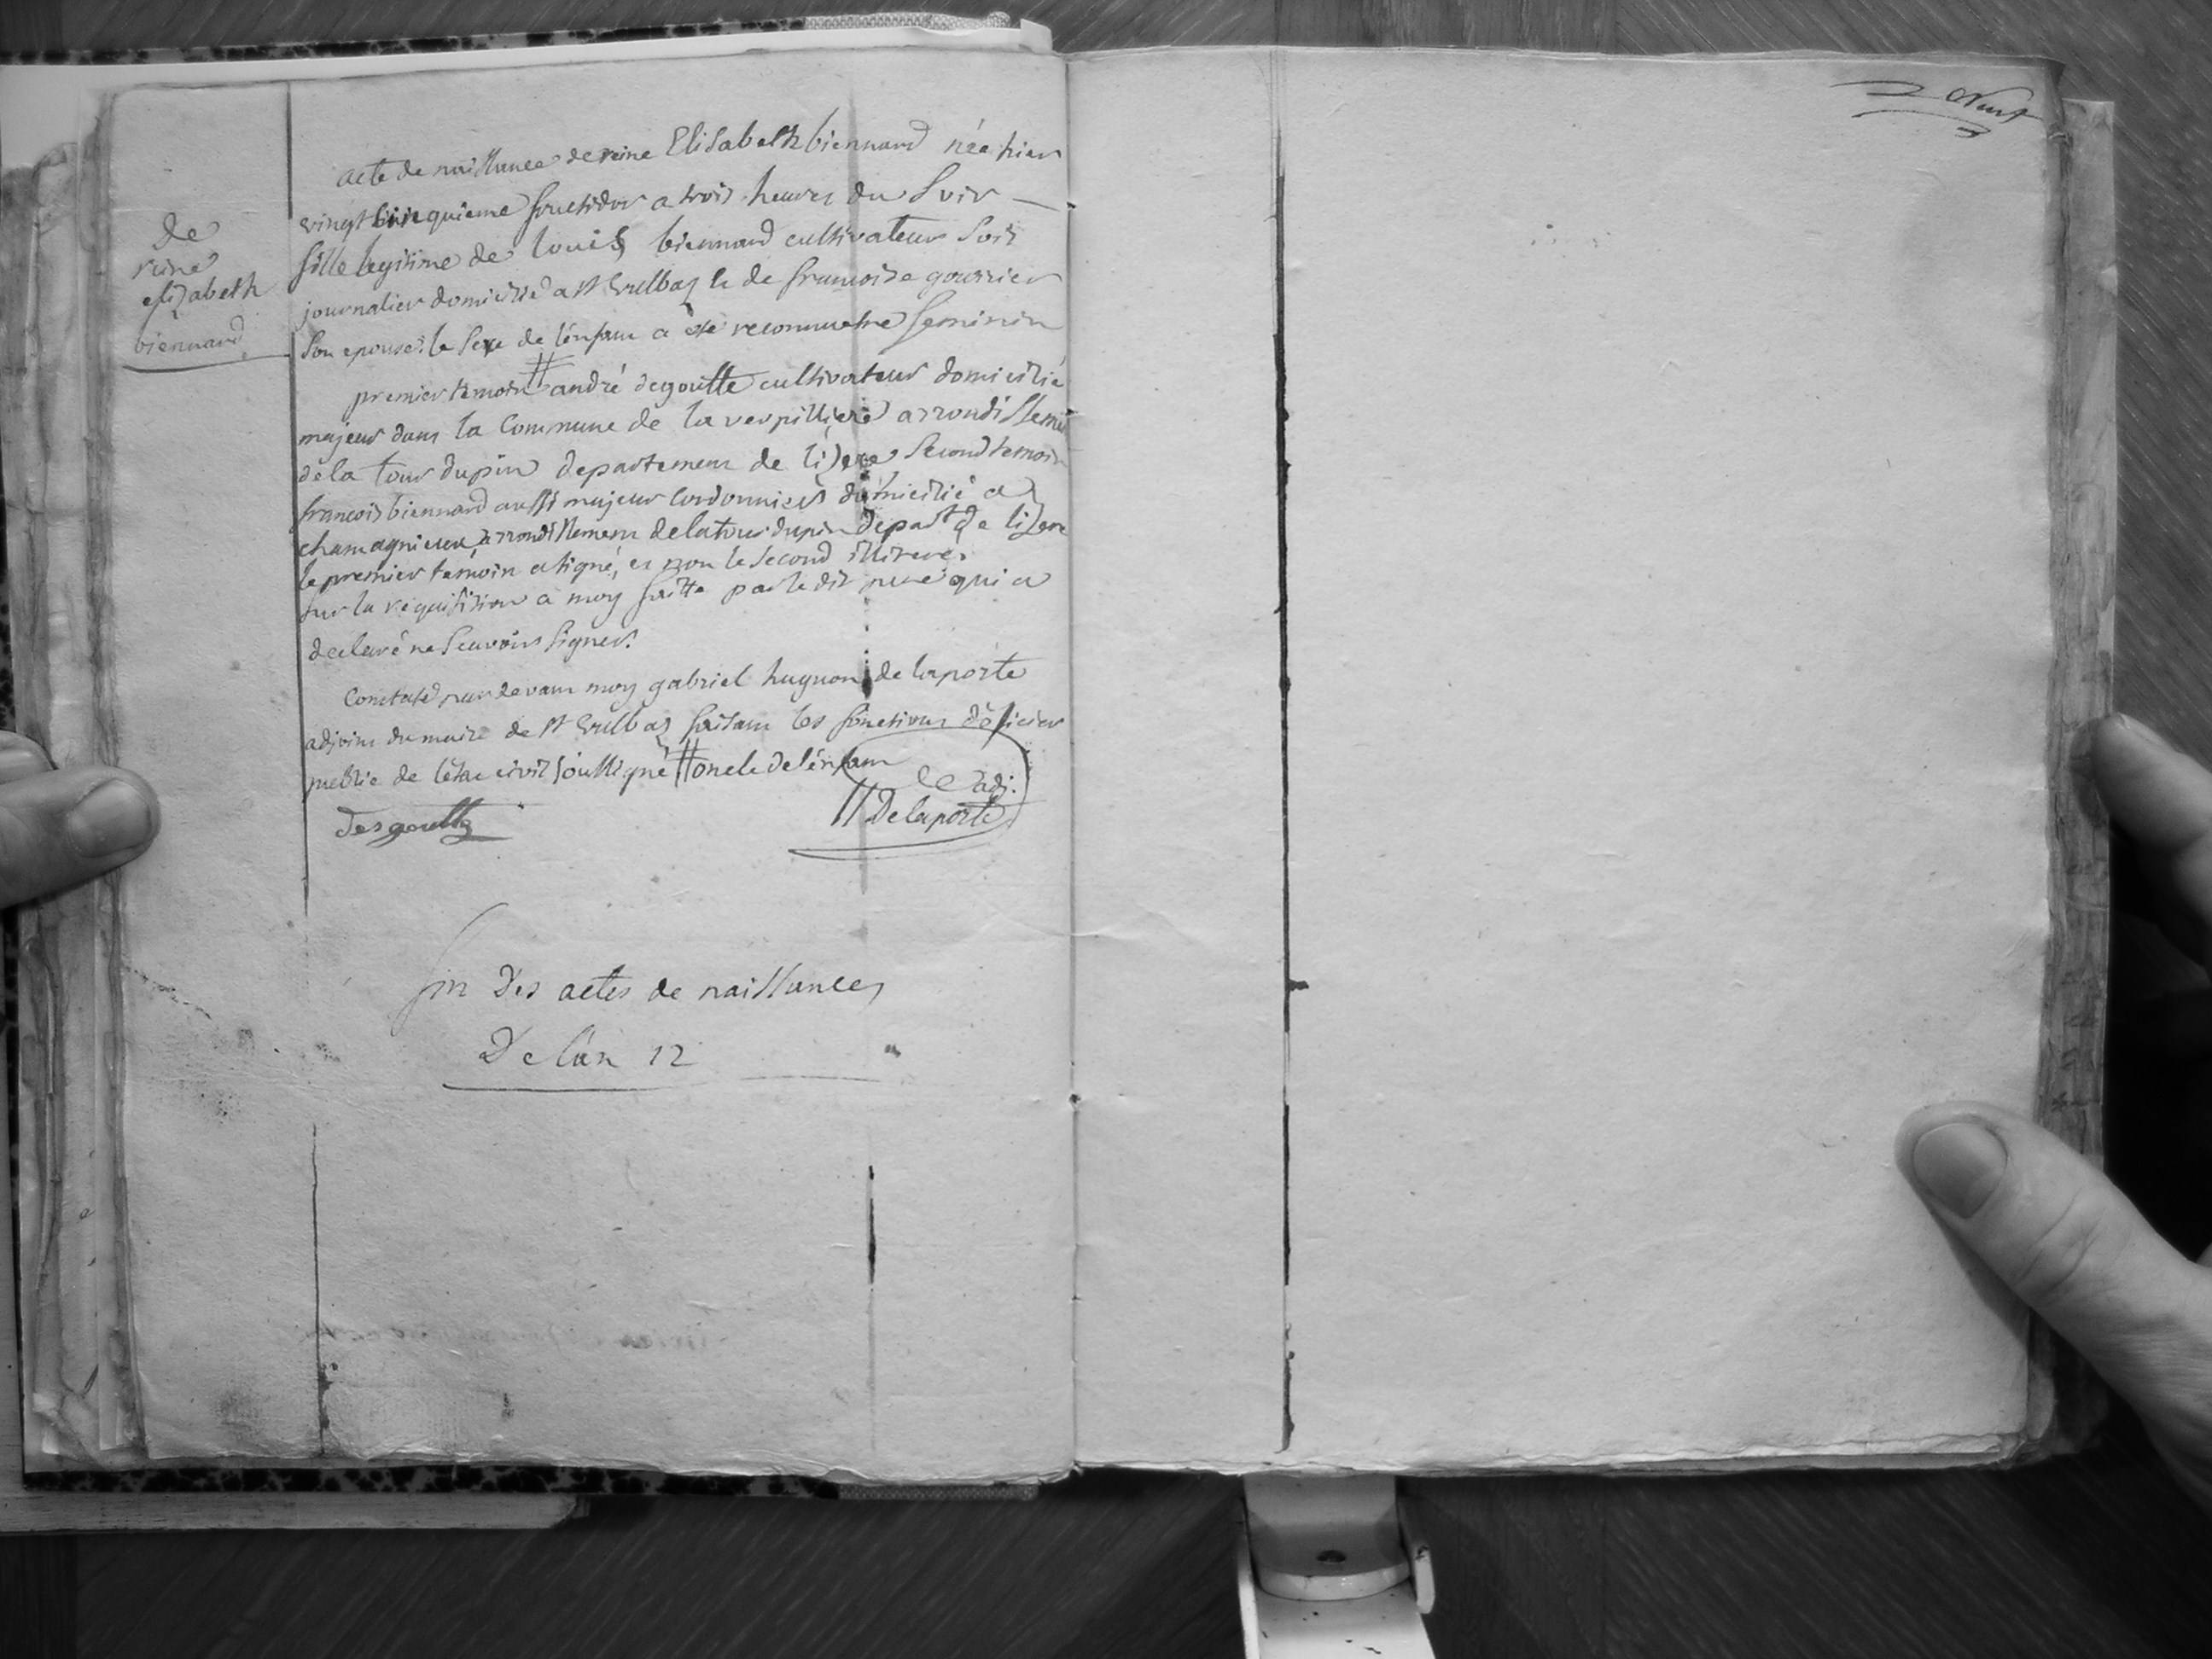 de
reine
elizabeth
biennard
acte de naissance de reine Elisabeth biennard née hier
vingt cinquieme fructidor a trois heures du soir —
fille legitime de louis biennard cultivateur soit
journalier domicilié a st Vulbas & de francoise gourrier
son epouse. le sexe de l'enfant a été reconnu etre feminin
premier temoin # andré degoutte cultivateur domicilié
majeur dans la Commune de la verpilliere arrondissemt
de la tour dupin departement de lizere second temoin
francois biennard aussi majeur cordonnier domicilié a
chamagnieux, arrondissement de la tour dupin depart de lizere
le premier temoin a signé, et non le second illitere.
sur la requisition a moy faitte par le dit pere qui a
declaré ne scavoir signer.
Constaté par devant moy gabriel hugnon de laporte
adjoint du maire de st Vulbas faisant les fonctions d'oficier
public de l'état civil soussigné # oncle de l'enfant
desgoutte
le adj:
H Delaporte
fin des actes de naissances
De l'an 12